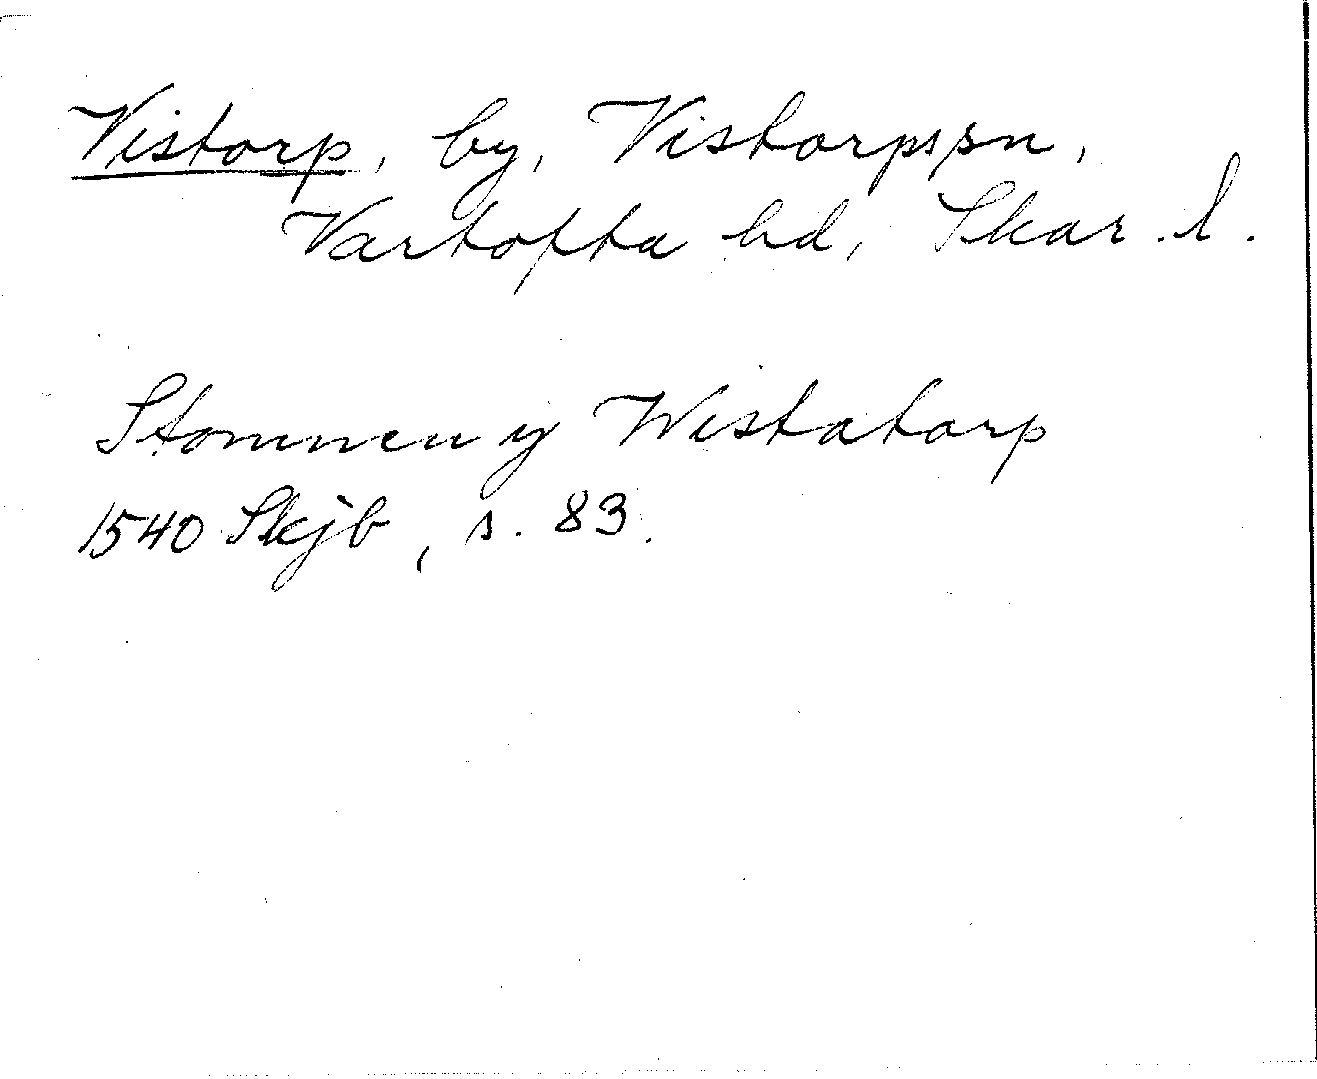 Vistorp, by, Vistorps sn,
Vartofta hd, Skar. l.
Stommen y Wistatorp
1540 Skjb, s. 83.